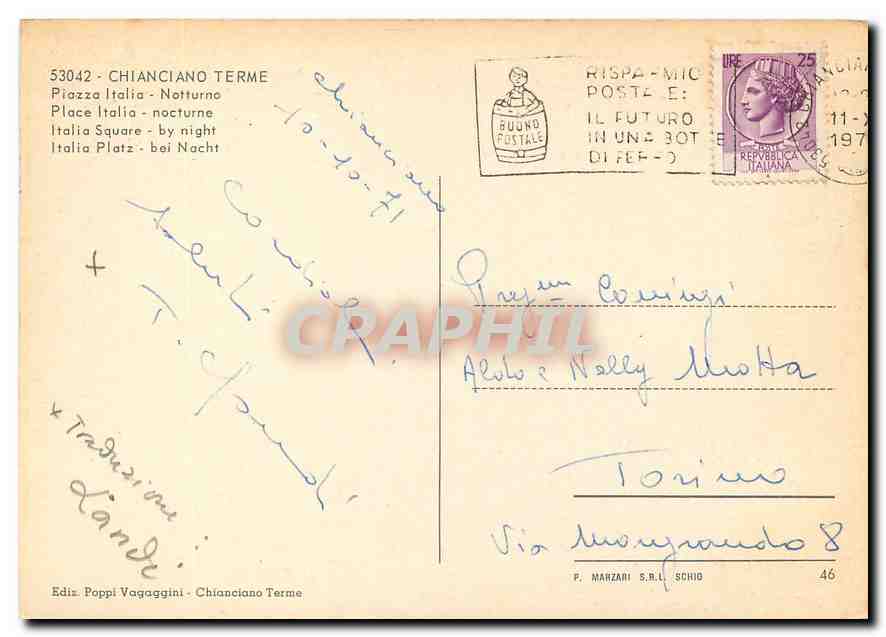 53042 - CHIANCIANO TERME
Piazza Italia - Notturno
Place Italia - nocturne
Italia Square - by night
Italia Platz - bei Nacht
chianciano
10-10-71
Cordiali
saluti
T. Landi
+
+ Traduzione
Landi
Ediz. Poppi Vagaggini - Chianciano Terme
BUONO
POSTALE
RISPA-MIO
POSTA E:
IL FUTURO
IN UNA BOTTE
DI FER-O
LIRE 25
POSTE
REPVBBLICA
ITALIANA
53042 CHIANCIA
11-X
197
Coniugi
Aldo e Nelly Motta
Torino
Via Mongrando 8
P. MARZARI S.R.L. SCHIO
46
CRAPHIL